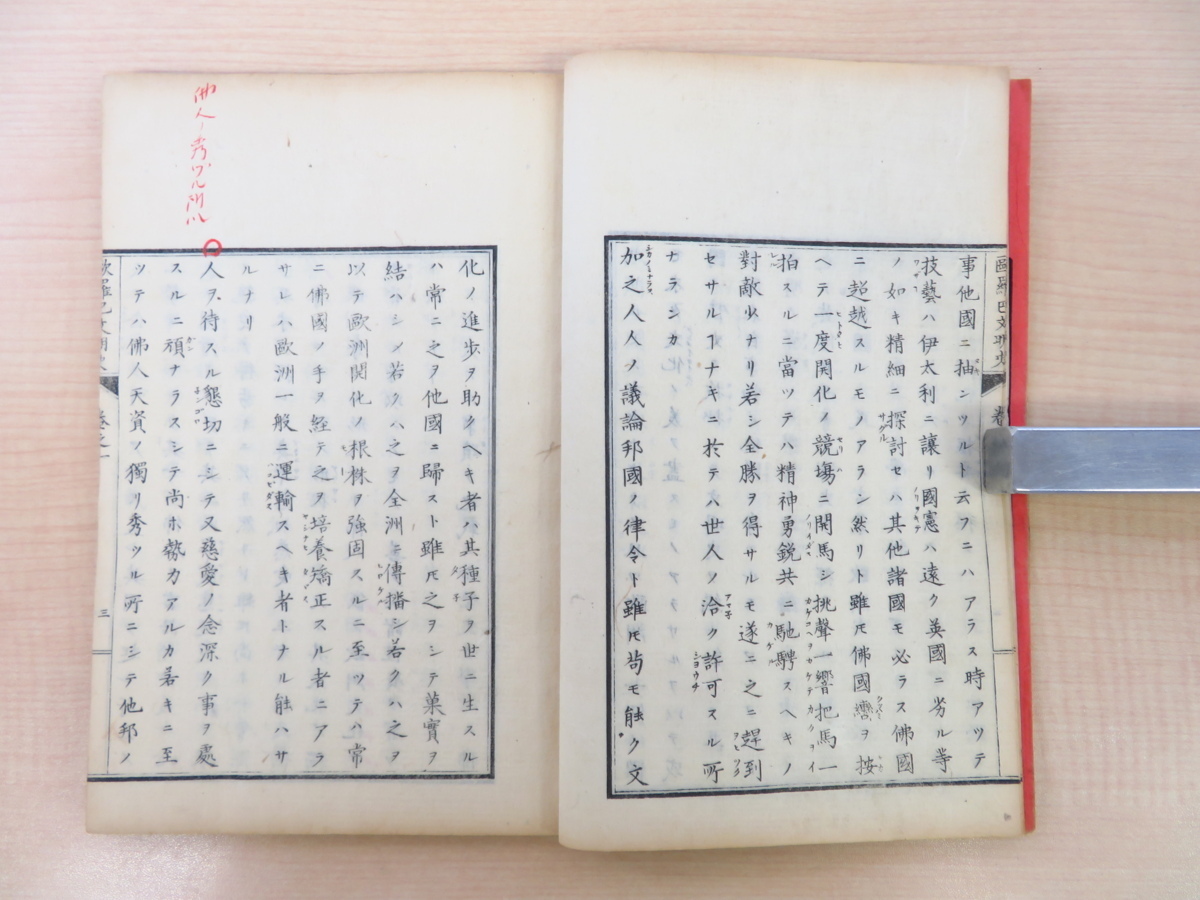 歐羅巴文明史
卷
事他國ニ抽ンツルト云フニハアラス時アツテ
技藝ハ伊太利ニ讓リ國憲ハ遠ク英國ニ劣ル等
ノ如キ精細ニ探討セハ其他諸國モ必ラス佛國
ニ超越スルモノアラシ然リト雖𪜈佛國轡ヲ按
ヘテ一度開化ノ競塲ニ開馬シ挑聲一響把馬一
拍スルニ當ツテハ精神勇鋭共ニ馳騁スヘキノ
對敵少ナリ若シ全勝ヲ得サルモ遂ニ之ニ趕到
セサルヿナキニ於テハ世人ノ洽ク許可スル所
ナランカ
加之人人ノ議論邦國ノ律令ト雖𪜈苟モ能ク文
化ノ進歩ヲ助クヘキ者ハ其種子ヲ世ニ生スル
ハ常ニ之ヲ他國ニ歸スト雖𪜈之ヲシテ菓實ヲ
結ハシメ若クハ之ヲ全洲ニ傳播シ若クハ之ヲ
以テ歐洲開化ノ根株ヲ強固スルニ至ツテハ常
ニ佛國ノ手ヲ経テ之ヲ培養矯正スル者ニアラ
サレハ歐洲一般ニ運輸スヘキ者トナル能ハサ
ルナリ
佛人ノ秀ヅル所以
人ヲ待スル懇切ニシテ又慈愛ノ念深ク事ヲ處
スルニ頑ナラスシテ尚ホ勢カアルカ若キニ至
ツテハ佛人天資ノ獨リ秀ツル所ニシテ他邦ノ
歐羅巴文明史
卷之一
三